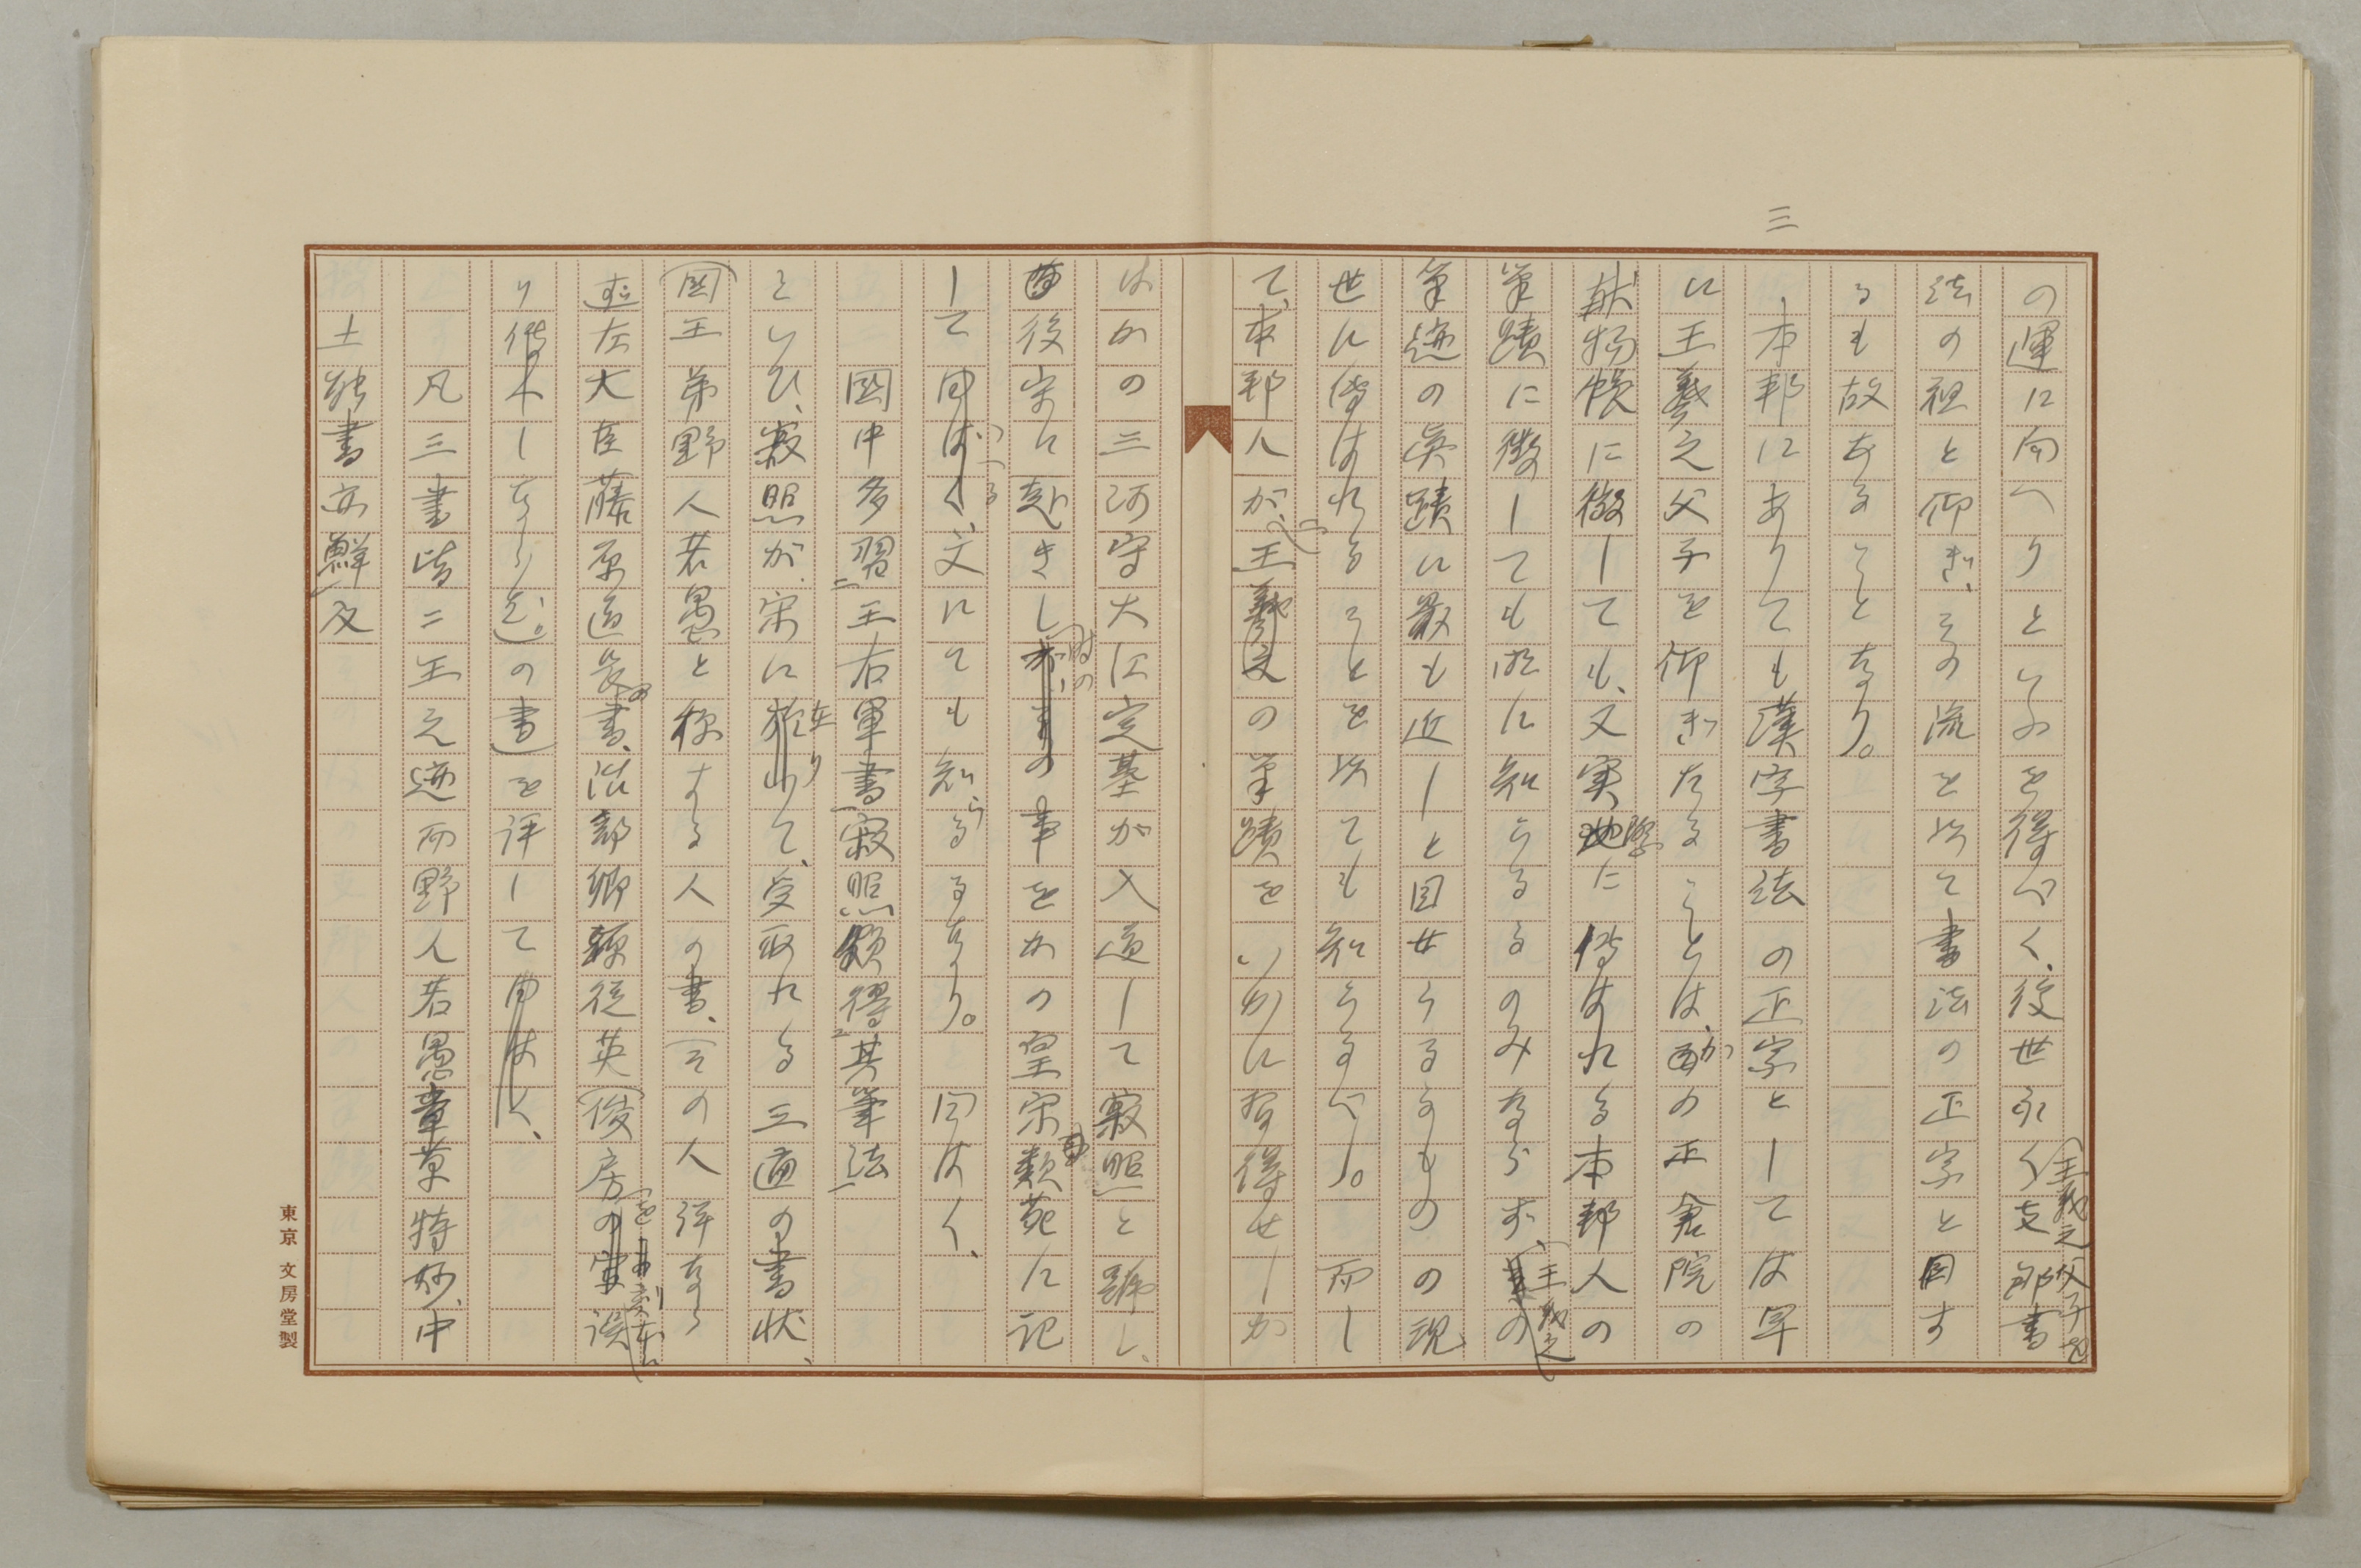 三
の運に向へりといふを得べく、後世永く王羲之父子を支那書
法の祖と仰ぎ、その流を以て書法の正宗と目す
るも故あることなり。
本邦にありても漢字書法の正宗としては早
に王羲之父子を仰ぎたることは、かの正倉院の
献物帳に徴しても、又実際に傳はれる本邦人の
筆蹟に徴しても明に知らるるのみならず、王羲之の
筆迹の真蹟に最も近しと目せらるるものの現
世に傳はれることを以ても知らるべし。而し
て、本邦人が、王羲之の筆蹟をいかに習得せしか
はかの三河守大江定基が入道して寂照と號し、
後宋に赴きし時の事をかの皇宋類苑に記
して曰へる文にても知らるるなり。曰はく、
國中多習王右軍書寂照頗得其筆法
といひ、寂照が宋に在りて、受取れる三通の書状、
國王弟野人若愚と称する人の書、(その人詳なら
ず)左大臣藤原道長の書、治部卿源從英(俊房を刻本に誤
り傳へしならむ。)の書を評して曰はく、
凡三書皆二王之迹而野人若愚章草特妙、中
土能書亦鮮及
東京 文房堂製